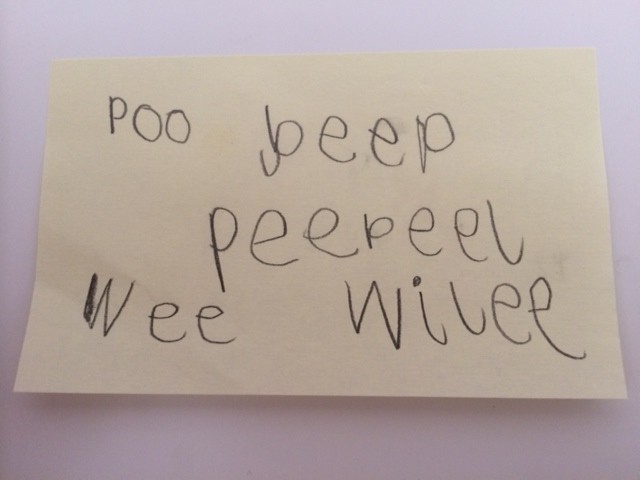 Poo beep
peepeel
Wee Wilee